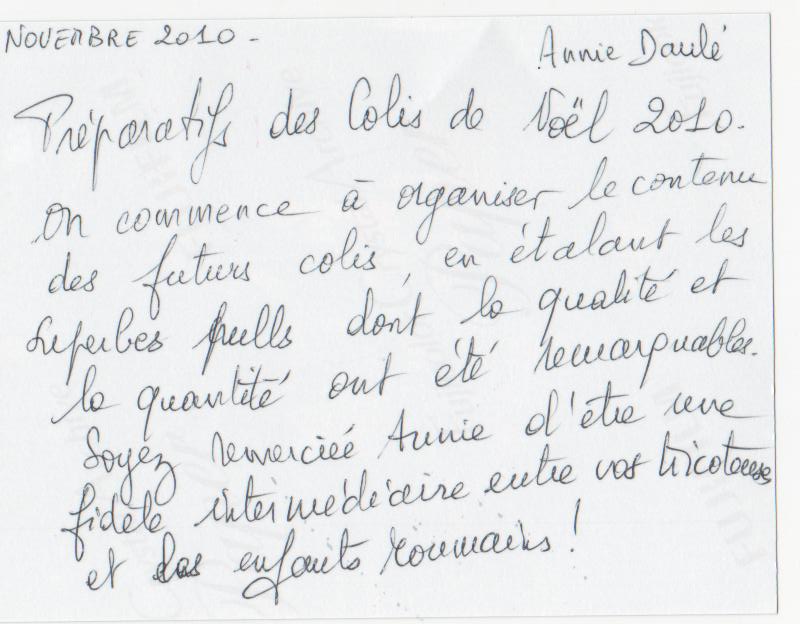 NOVEMBRE 2010 -
Annie Daulé
Préparatifs des Colis de Noël 2010.
On commence à organiser le contenu
des futurs colis, en étalant les
superbes pulls dont la qualité et
la quantité ont été remarquables.
Soyez remerciée Annie d'être une
fidèle intermédiaire entre vos tricoteuses
et les enfants roumains !